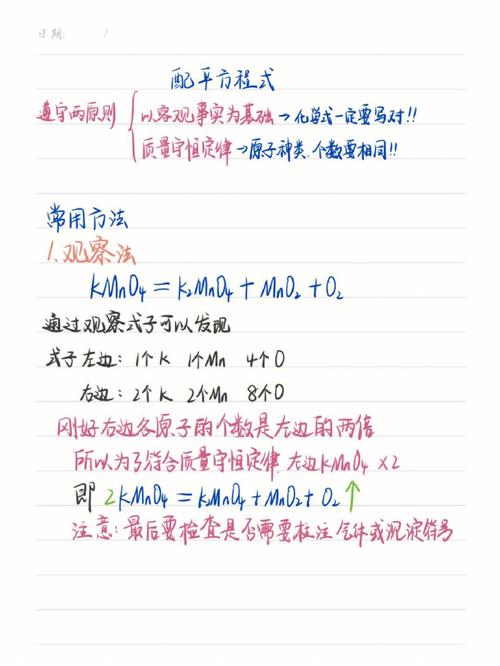 日期: /
配平方程式
遵守两原则 { 以客观事实为基础→化学式一定要写对!!
质量守恒定律→原子种类.个数要相同!!
常用方法
1.观察法
KMnO4=K2MnO4+MnO2+O2
通过观察式子可以发现
式子左边:1个K 1个Mn 4个O
右边:2个K 2个Mn 8个O
刚好右边各原子的个数是左边的两倍
所以为了符合质量守恒定律.左边KMnO4 ×2
即 2KMnO4=K2MnO4+MnO2+O2↑
注意:最后要检查是否需要标注气体或沉淀符号